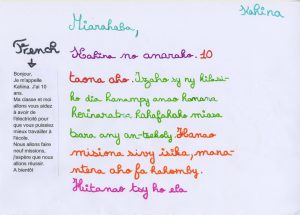 Kahina
Miarahaba,
French
Kahina no anarako. 10
taona aho. Izaho sy ny kilasi-
ko dia hanampy anao hanana
herinaratra. Hahafahako miasa
tsara any an-tsekoly. Hanao
misiona sivy isika, mana-
ntena aho fa hahomby.
Hiitanao tsy ho ela
Bonjour,
Je m'appelle
Kahina. J'ai 10
ans.
Ma classe et moi
allons vous aidez
à avoir de
l'électricité pour
que vous puissiez
mieux travailler à
l'école.
Nous allons faire
neuf missions,
j'espère que nous
allons réussir.
A bientôt